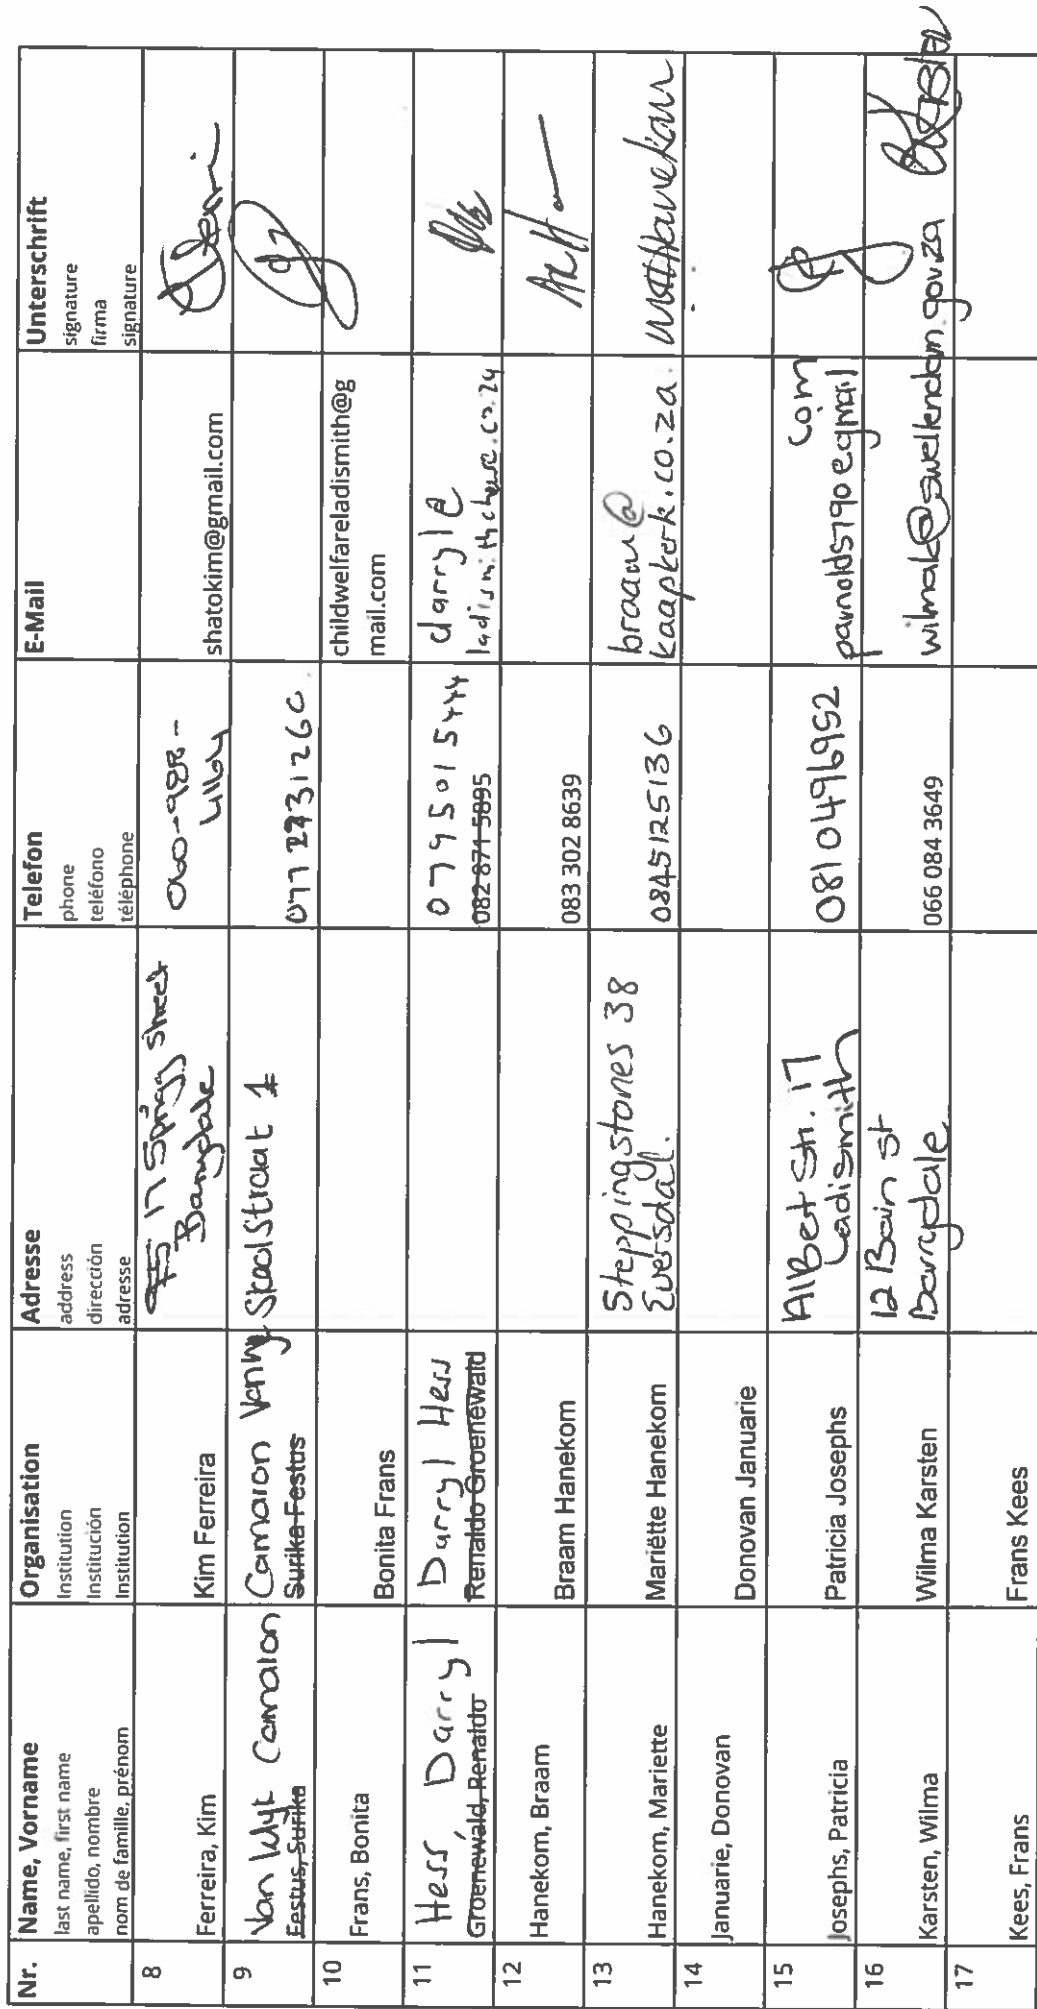 Nr.
Name, Vorname
last name, first name
apellido, nombre
nom de famille, prénom
Organisation
Institution
Institución
Institution
Adresse
address
dirección
adresse
Telefon
phone
teléfono
téléphone
E-Mail
Unterschrift
signature
firma
signature
8
Ferreira, Kim
Kim Ferreira
17 Spriggs Street
Barrydale
060-988-
4164
shatokim@gmail.com
9
Van Wyk Camaron
Festus, Surika
Camaron VanWyk
Surika Festus
Skool Straat 1
10
Frans, Bonita
Bonita Frans
childwelfareladismith@g
mail.com
11
Hess, Darryl
Groenewald, Renaldo
Darryl Hess
Renaldo Groenewald
0795015444
082 871 5895
darryl@
12
Hanekom, Braam
Braam Hanekom
083 302 8639
13
Hanekom, Mariette
Mariëtte Hanekom
Steppingstones 38
Eversdal.
0845125136
braam@
kaapkerk.co.za.
14
Januarie, Donovan
Donovan Januarie
15
Josephs, Patricia
Patricia Josephs
Albert Str. 17
Ladismith
0810496952
com
parnolds790@gmail
16
Karsten, Wilma
Wilma Karsten
12 Bain st
Barrydale
066 084 3649
wilmak@swellendam.gov.za
17
Kees, Frans
Frans Kees